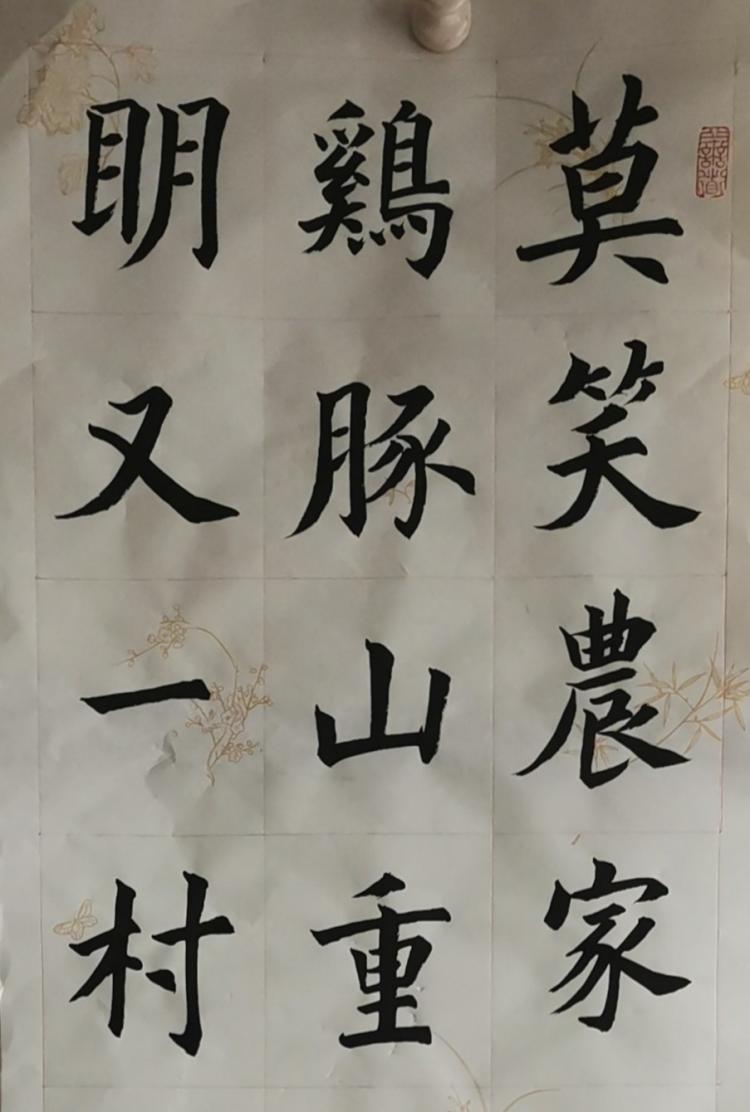 莫笑農家
鷄豚山重
明又一村